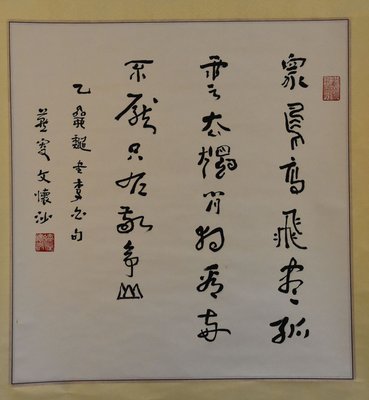 眾鳥高飛盡孤
雲去獨閒相看兩
不厭只有敬亭山
乙龝書李白句
燕叟文懷沙